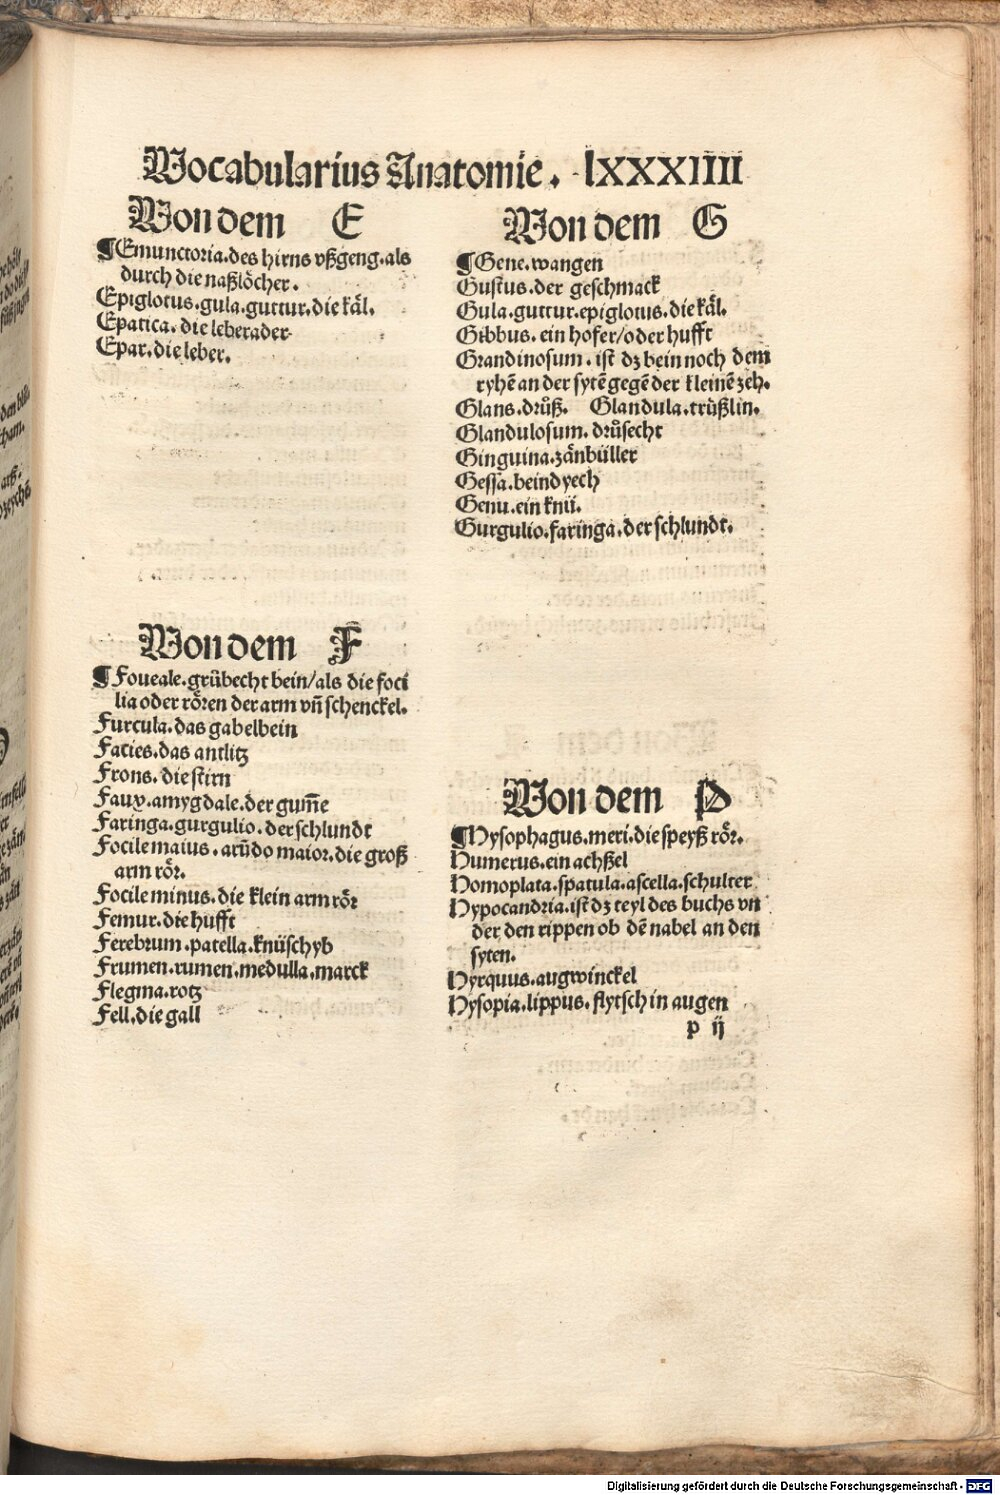 Vocabularius Anatomie. lxxxiiii
Von dem E
¶Emunctoria.des hirns vßgeng.als
durch die naßlöcher.
Epiglotus.gula.guttur.die käl.
Epatica.die leberader.
Epar.die leber.
Von dem F
¶Foueale.grübecht bein/als die foci
lia oder rören der arm vñ schenckel.
Furcula.das gabelbein
Facies.das antlitz
Frons.die stirn
Faux.amygdale.der gum̄e
Faringa.gurgulio.der schlundt
Focile maius.arūdo maior.die groß
arm rör.
Focile minus.die klein arm rör
Femur.die hufft
Ferebrum.patella.knüschyb
Frumen.rumen.medulla.marck
Flegma.rotz
Fell.die gall
Von dem G
¶Gene.wangen
Gustus.der geschmack
Gula.guttur.epiglotus.die käl.
Gibbus.ein hofer/oder hufft
Grandinosum.ist dz bein noch dem
ryhē an der sytē gegē der kleinē zeh.
Glans.drůß. Glandula.trüßlin.
Glandulosum.drůsecht
Ginguina.zänbüller
Gessa.beindyech
Genu.ein knü.
Gurgulio.faringa.der schlundt.
Von dem H
¶Hysophagus.meri.die speyß rör.
Humerus.ein achßel
Homoplata.spatula.ascella.schulter
Hypocandria.ist dz teyl des buchs vn
der den rippen ob dē nabel an den
syten.
Hyrquus.augwinckel
Hysopia.lippus.flytsch in augen
p ij
Digitalisierung gefördert durch die Deutsche Forschungsgemeinschaft - DFG